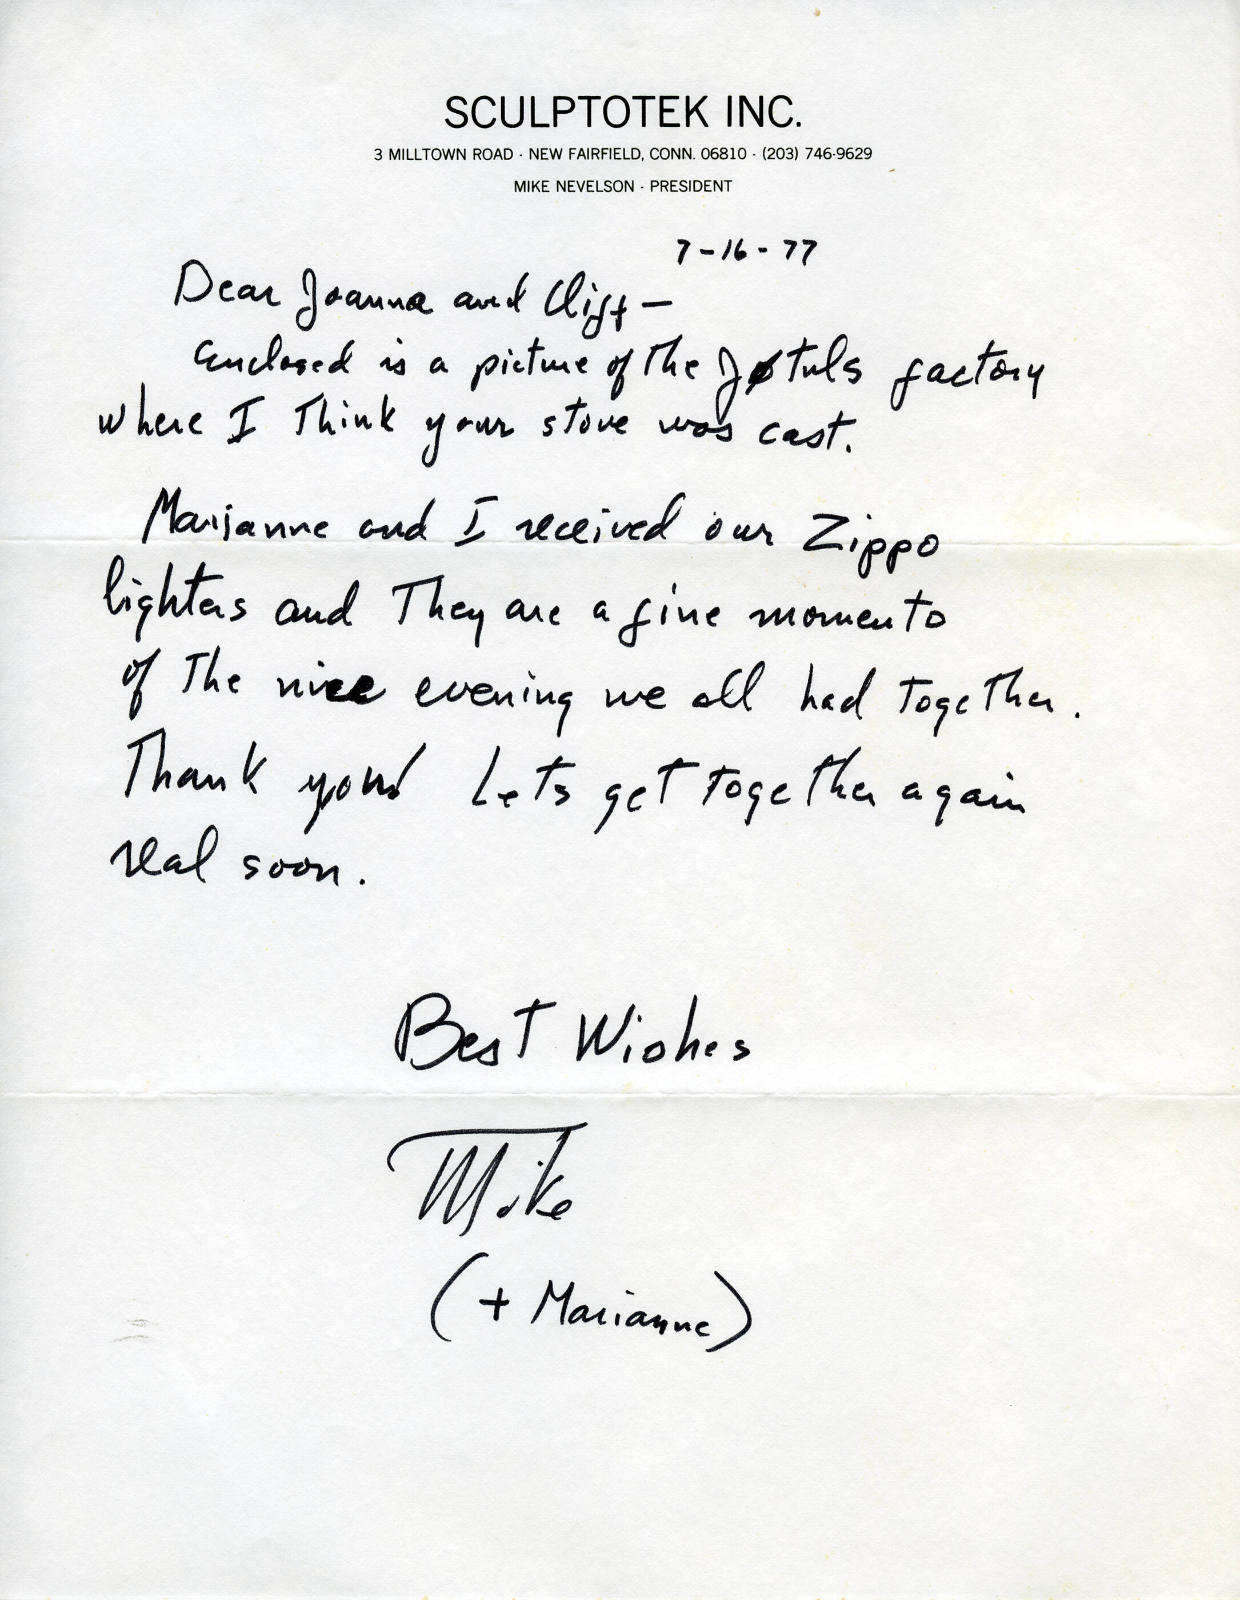 SCULPTOTEK INC.
3 MILLTOWN ROAD · NEW FAIRFIELD, CONN. 06810 · (203) 746-9629
MIKE NEVELSON · PRESIDENT
7-16-77
Dear Joanna and Cliff —
Enclosed is a picture of the Jøtuls factory
where I Think your stove was cast.
Marianne and I received our Zippo
lighters and They are a fine momento
of The nice evening we all had together.
Thank you! Lets get together again
real soon.
Best Wishes
Mike
(+ Marianne)